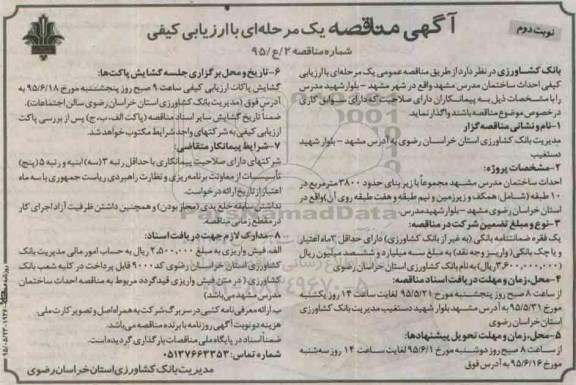 نوبت دوم
آگهی مناقصه یک مرحله‌ای با ارزیابی کیفی
شماره مناقصه ۲/ع/۹۵
بانک کشاورزی در نظر دارد از طریق مناقصه عمومی یک مرحله‌ای با ارزیابی
کیفی احداث ساختمان مدرس مشهد واقع در شهر مشهد - بلوار شهید مدرس
را با مشخصات ذیل به پیمانکاران دارای صلاحیت که دارای سوابق کاری
در خصوص موضوع مناقصه باشند واگذار نماید.
۱- نام و نشانی مناقصه‌گزار
مدیریت بانک کشاورزی استان خراسان رضوی به آدرس مشهد - بلوار شهید
دستغیب
۲- مشخصات پروژه:
احداث ساختمان مدرس مشهد مجموعاً با زیربنای حدود ۳۸۰۰ مترمربع در
۱۰ طبقه (شامل: همکف و زیرزمین و نیم طبقه و هفت طبقه روی آن) واقع در
استان خراسان رضوی مشهد - بلوار شهید مدرس
۳- نوع و مبلغ تضمین شرکت در مناقصه:
یک فقره ضمانتنامه بانکی (به غیر از بانک کشاورزی) دارای حداقل ۳ ماه اعتبار
و یا چک بانکی (واریز وجه نقد) به مبلغ سه میلیارد و ششصد میلیون ریال
(۳,۶۰۰,۰۰۰,۰۰۰ ریال) به نام بانک کشاورزی استان خراسان رضوی
۴- محل، زمان و مهلت دریافت اسناد مناقصه:
از ساعت ۸ صبح روز پنجشنبه مورخ ۹۵/۵/۲۱ لغایت ساعت ۱۴ روز یکشنبه
مورخ ۹۵/۵/۳۱ به آدرس مشهد بلوار شهید دستغیب مدیریت بانک کشاورزی
استان خراسان رضوی
۵- محل، زمان و مهلت تحویل پیشنهادها:
از ساعت ۸ صبح روز دوشنبه مورخ ۹۵/۶/۱ لغایت ساعت ۱۴ روز سه‌شنبه
مورخ ۹۵/۶/۱۶ به آدرس فوق
۶- تاریخ و محل برگزاری جلسه گشایش پاکت‌ها:
گشایش پاکات ارزیابی کیفی ساعت ۹ صبح روز پنجشنبه مورخ ۹۵/۶/۱۸ به
آدرس فوق (مدیریت بانک کشاورزی استان خراسان رضوی سالن اجتماعات).
ضمناً تاریخ گشایش سایر اسناد مناقصه (پاکت الف، ب، ج) پس از بررسی پاکت
ارزیابی کیفی به شرکتهای واجد شرایط مکتوب خواهد شد.
۷- شرایط پیمانکار متقاضی:
شرکتهای دارای صلاحیت پیمانکاری با حداقل رتبه ۳ (سه) ابنیه و رتبه ۵ (پنج)
تأسیسات از معاونت برنامه‌ریزی و نظارت راهبردی ریاست جمهوری با سه ماه
اعتبار از تاریخ ارائه درخواست.
نداشتن سابقه خلع ید (مجاز بودن) و همچنین داشتن ظرفیت آزاد اجرای کار
در مقطع زمانی مناقصه
۸- مدارک لازم جهت دریافت اسناد:
الف. فیش واریزی به مبلغ ۲,۵۰۰,۰۰۰ ریال به حساب امور مالی مدیریت بانک
کشاورزی استان خراسان رضوی کد ۹۰۰۰ قابل پرداخت در کلیه شعب بانک
کشاورزی (در متن فیش واریزی قید گردد مربوط به مناقصه احداث ساختمان
مدرس مشهد می‌باشد)
ب. ارائه معرفی‌نامه کتبی در سربرگ شرکت به همراه اصل و تصویر کارت ملی.
هزینه دو نوبت آگهی روزنامه با برنده مناقصه می‌باشد.
ضمناً اسناد در پایگاه ملی مناقصات بارگذاری گردیده است.
شماره تماس: ۰۵۱۳۷۶۶۳۳۵۳
مدیریت بانک کشاورزی استان خراسان رضوی
ParsNamadData